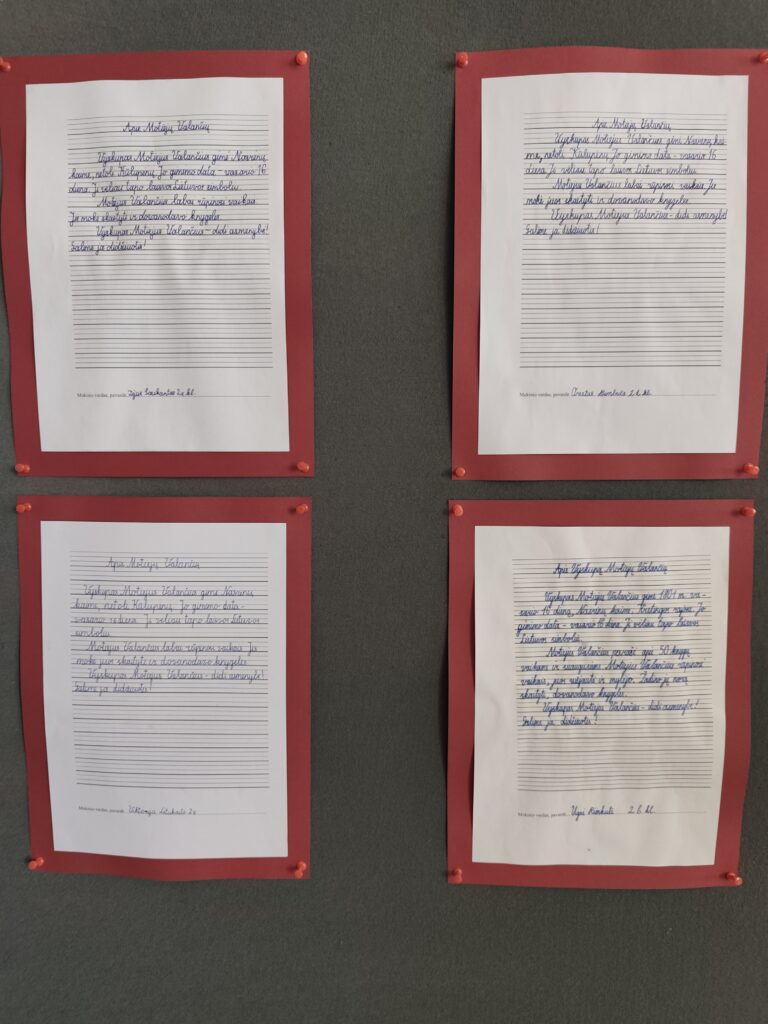 Apie Motiejų Valančių
Vyskupas Motiejus Valančius gimė Nasrėnų
kaime, netoli Kalupėnų. Jo gimimo data - vasario 16
diena. Ji vėliau tapo laisvos Lietuvos simboliu.
Motiejus Valančius labai rūpinosi vaikais.
Jis mokė skaityti ir dovanodavo knygeles.
Vyskupas Motiejus Valančius - didi asmenybė!
Galime ja didžiuotis!
Mokinio vardas, pavardė 2a kl.
Apie Motiejų Valančių
Vyskupas Motiejus Valančius gimė Nasrėnų kai-
me, netoli Kalupėnų. Jo gimimo data - vasario 16
diena. Ji vėliau tapo laisvos Lietuvos simboliu.
Motiejus Valančius labai rūpinosi vaikais. Jis
mokė juos skaityti ir dovanodavo knygeles.
Vyskupas Motiejus Valančius - didi asmenybė!
Galime ja didžiuotis!
Mokinio vardas, pavardė kl.
Apie Motiejų Valančių
Vyskupas Motiejus Valančius gimė Nasrėnų
kaime, netoli Kalupėnų. Jo gimimo data -
vasario 16 diena. Ji vėliau tapo laisvos Lietuvos
simboliu.
Motiejus Valančius labai rūpinosi vaikais. Jis
mokė juos skaityti ir dovanodavo knygeles.
Vyskupas Motiejus Valančius - didi asmenybė!
Galime ja didžiuotis!
Mokinio vardas, pavardė
Apie Vyskupą Motiejų Valančių
Vyskupas Motiejus Valančius gimė 1801 m. va-
sario 16 dieną, Nasrėnų kaime, Kretingos rajone. Jo
gimimo data - vasario 16 diena. Ji vėliau tapo laisvos
Lietuvos simboliu.
Motiejus Valančius parašė apie 50 knygų
vaikams ir suaugusiems. Motiejus Valančius rūpinosi
vaikais, juos užjautė ir mylėjo. Žadino jų norą
skaityti, dovanodavo knygeles.
Vyskupas Motiejus Valančius - didi asmenybė!
Galime ja didžiuotis!
Mokinio vardas, pavardė 2 b kl.